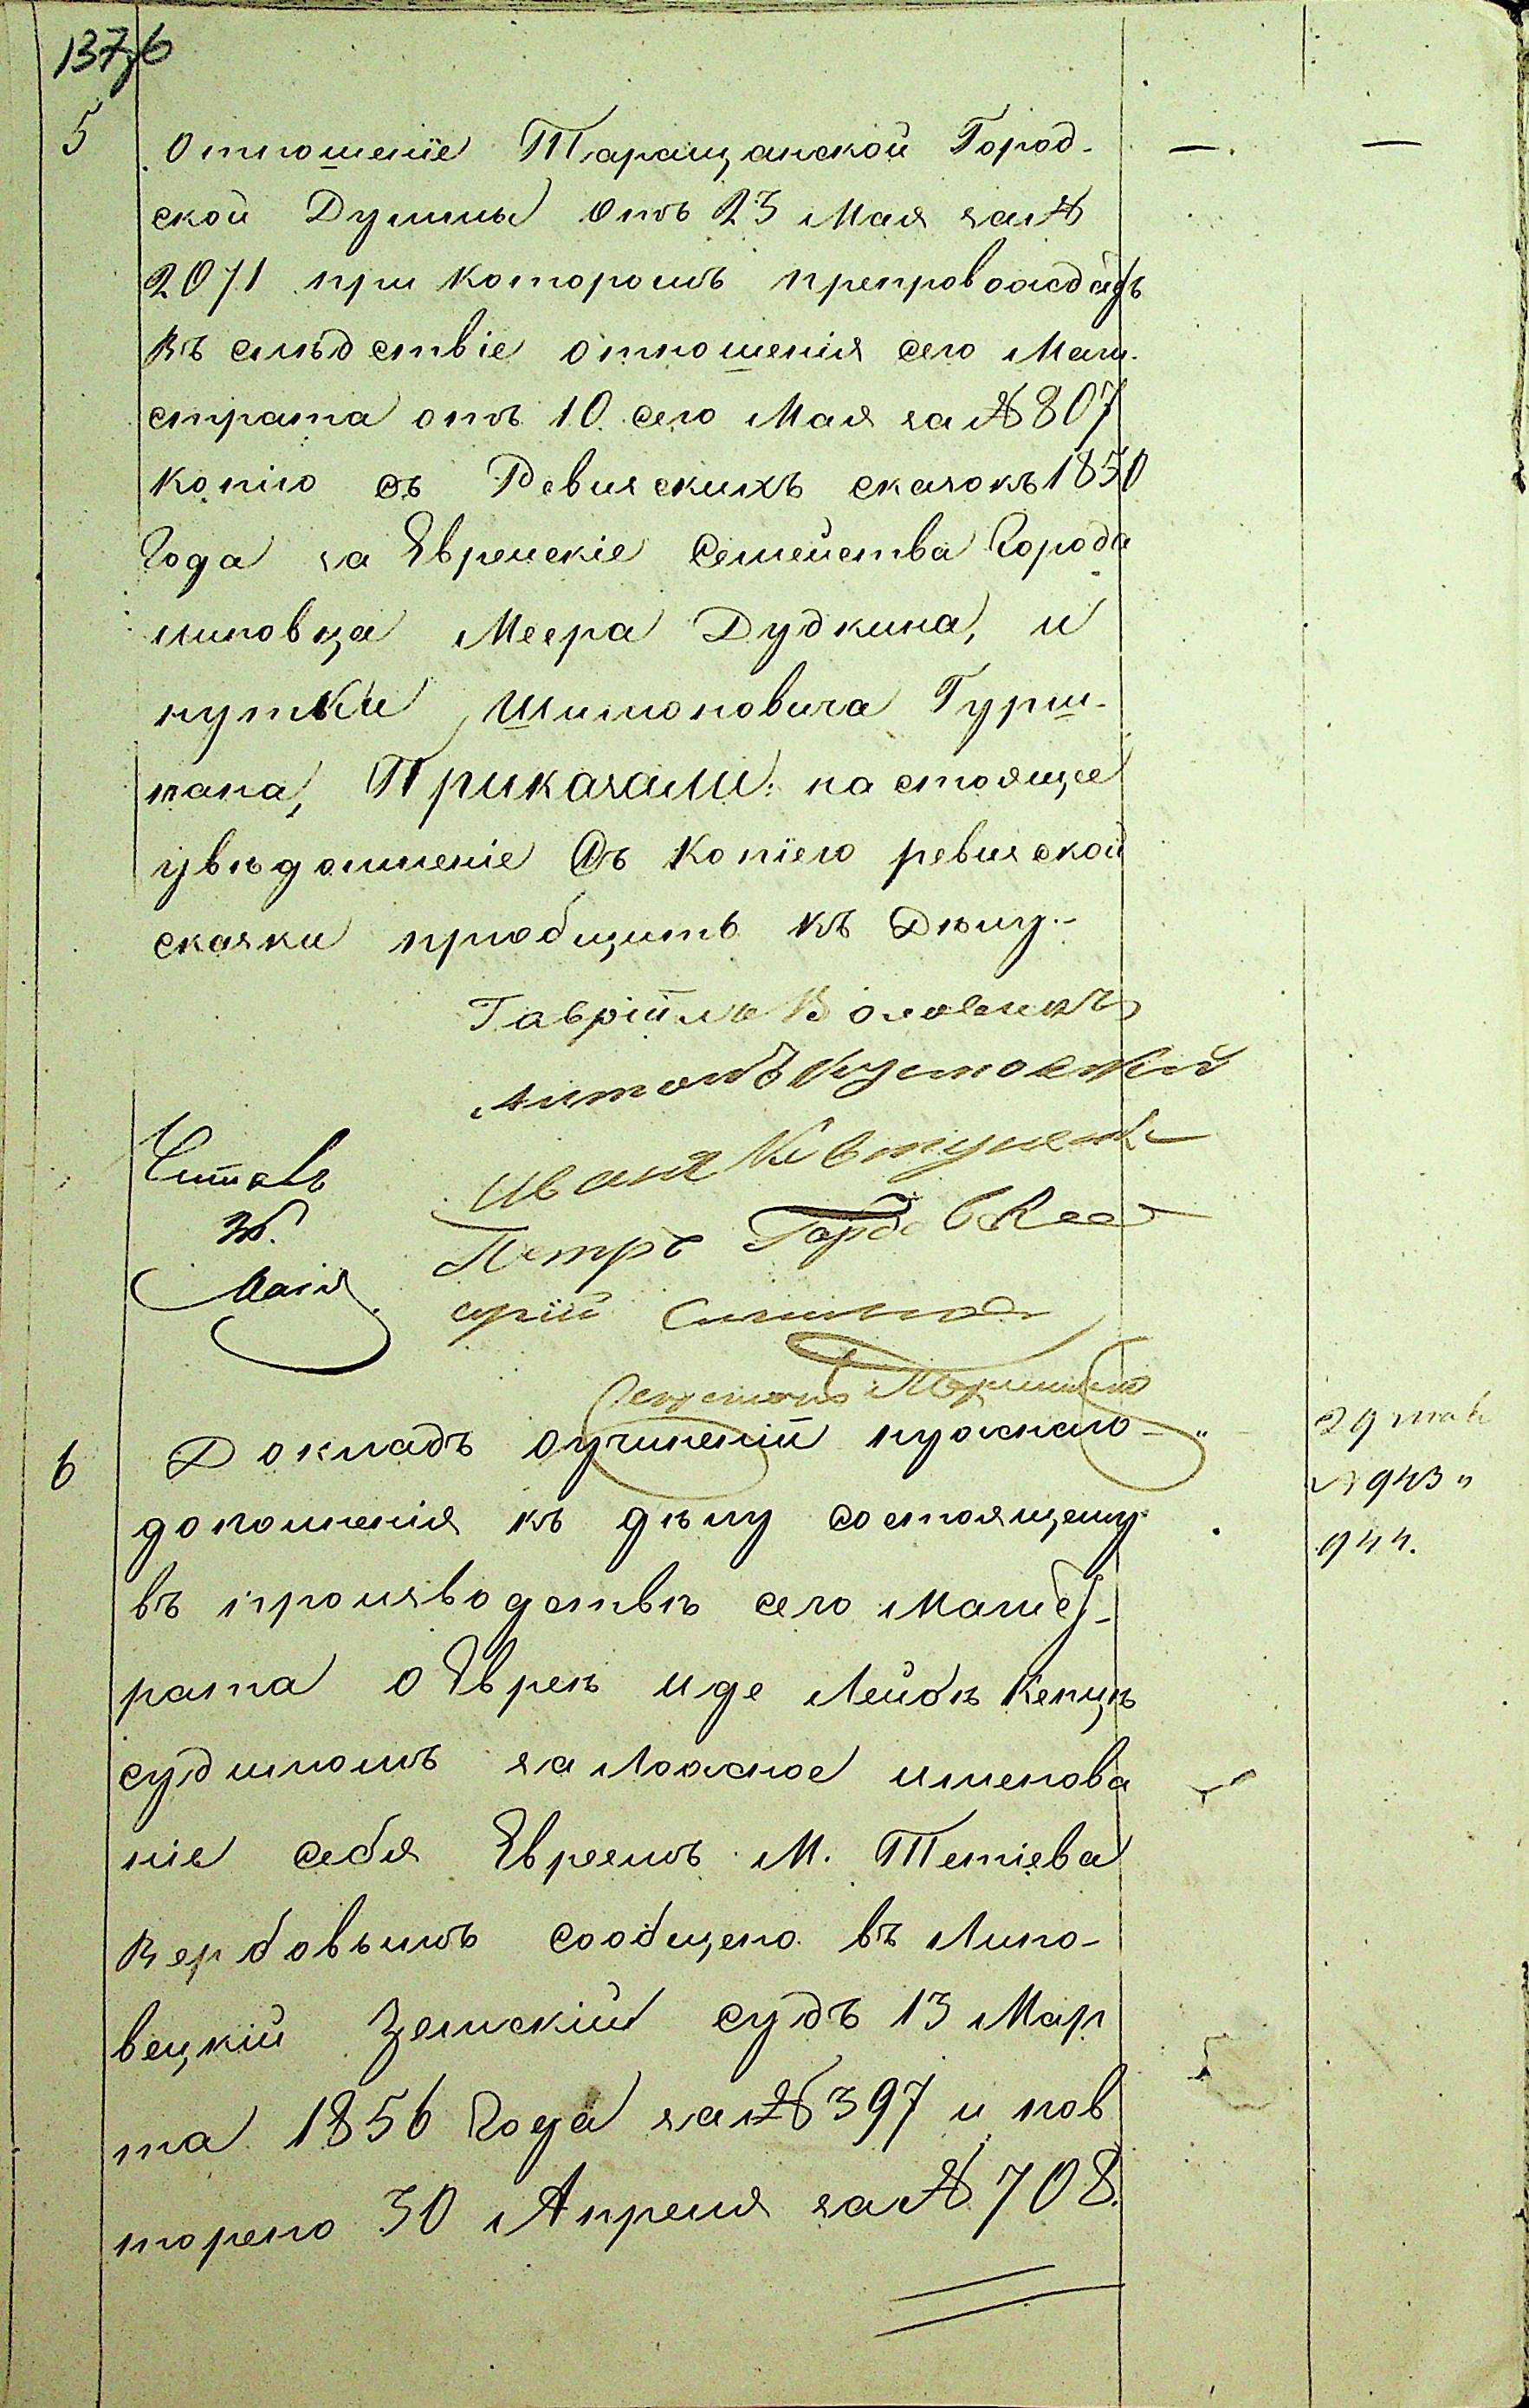 137 б
5
Отношеніе Таращанской Город-
ской Думы Отъ 23 Мая за №
2071 при которомъ препровождаетъ
въ слѣдствіе отношенія сего Маги-
страта отъ 10 сего Мая за № 807
копію съ Ревизскихъ сказокъ 1850
Года за Еврейскіе Семейства Города
Липовца Меера Дудкина, и
нутки Шимоновича Гурш-
мана, Приказали: настоящее
увѣдомленіе Съ Копіею ревизской
сказки пріобщить къ Дѣлу.-
Гавріилъ
Антонъ
Читалъ
Иванъ
Петръ
30.
Маія
6
Докладъ о учиненіи нужнаго
дополненія къ дѣлу состоящему
въ производствѣ сего Магист-
рата о Евреѣ Иде Лейбѣ Кепцѣ
судимомъ за Ложное именова
ніе себя Евреемъ М. Тетіева
Вербовымъ сообщено въ Липо-
вецкій Земскій судъ 13 Мар
та 1856 Года за № 397 и пов
торено 30 Апреля за № 708.
29 мая
№ 943 и
944.